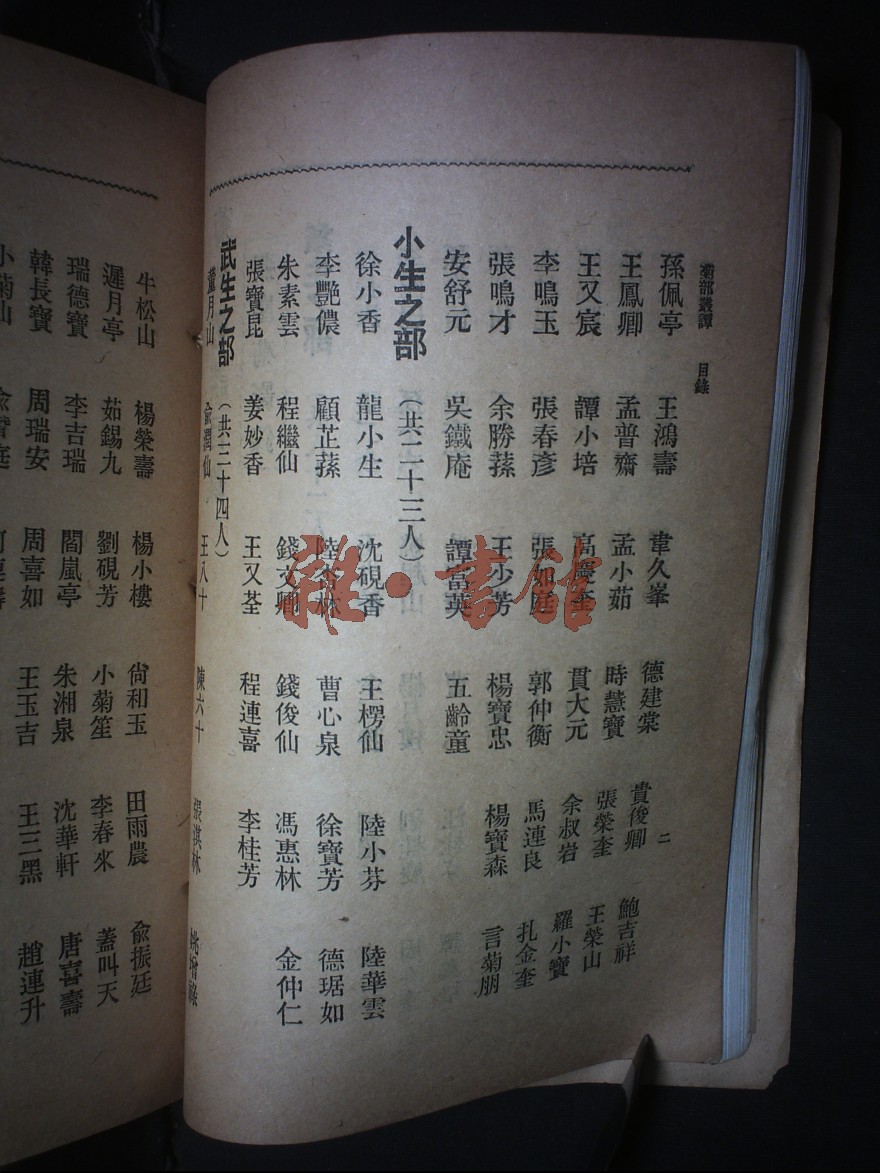 菊部叢譚 目錄 二
孫佩亭 王鴻壽 韋久峯 德建棠 貴俊卿 鮑吉祥
王鳳卿 孟普齋 孟小茹 時慧寶 張榮奎 王榮山
王又宸 譚小培 高慶奎 貫大元 余叔岩 羅小寶
李鳴玉 張春彥 張如庭 郭仲衡 馬連良 扎金奎
張鳴才 余勝蓀 王少芳 楊寶忠 楊寶森 言菊朋
安舒元 吳鐵庵 譚富英 五齡童
小生之部 (共二十三人)
徐小香 龍小生 沈硯香 王楞仙 陸小芬 陸華雲
李艷儂 顧芷蓀 陸杏林 曹心泉 徐寶芳 德珺如
朱素雲 程繼仙 錢文卿 錢俊仙 馮惠林 金仲仁
張寶昆 姜妙香 王又荃 程連喜 李桂芳
武生之部 (共三十四人)
董月山 俞潤仙 王八十 陳六十 張淇林 姚增祿
牛松山 楊榮壽 楊小樓 尙和玉 田雨農 俞振廷
遲月亭 茹錫九 劉硯芳 小菊笙 李春來 蓋叫天
瑞德寶 李吉瑞 閻嵐亭 朱湘泉 沈華軒 唐喜壽
韓長寶 周瑞安 周喜如 王玉吉 王三黑 趙連升
小菊山
雜·書館